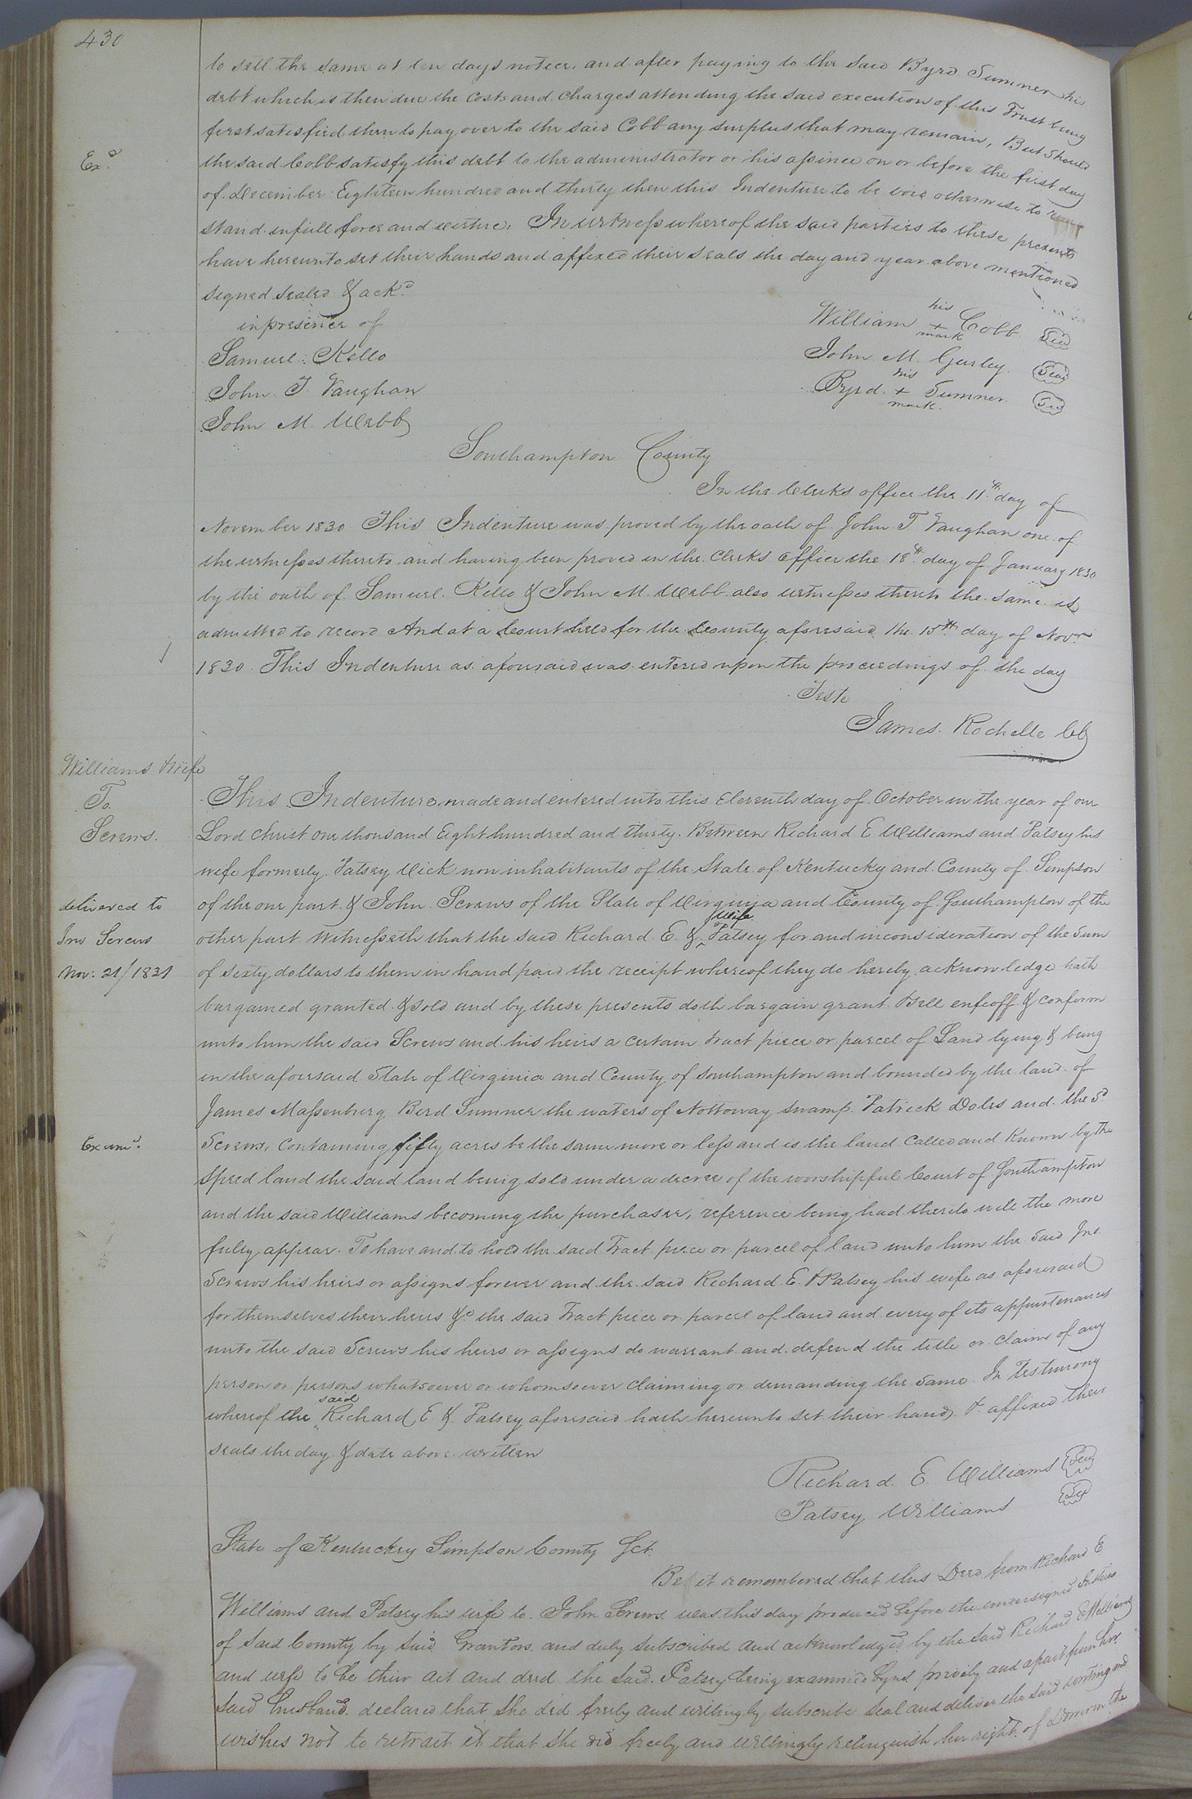 430
to sell the same at ten days notice, and after paying to the said Byrd Sumner his
debt which is then due the Costs and charges attending the said execution of this Trust being
first satisfied then to pay over to the said Cobb any surplus that may remain, But should
Exd
the said Cobb satisfy this debt to the administrator or his assinee on or before the first day
of December Eighteen hundred and thirty then this Indenture to be void otherwise to
stand in full force and virtue. In witness whereof the said parties to these presents
have hereunto set their hands and affixed their seals the day and year above mentioned
signed sealed & ackd
in presence of
Samuel Kello
John T Vaughan
John M Webb
William his + mark Cobb Seal
John M. Gurley Seal
Byrd his + mark Sumner Seal
Southampton County
In the Clerks office the 11th day of
November 1830 This Indenture was proved by the oath of John T Vaughan one of
the witnesses thereto and having been proved in the Clerks office the 18th day of January 1830
by the oath of Samuel Kello & John M. Webb also witnesses thereto the same is
admitted to record And at a Court held for the County aforesaid the 15th day of Novr
1830 This Indenture as aforesaid was entered upon the proceedings of the day
Teste
James Rochelle Cl
Williams & Wife
To
Screws.
delivered to
Jno Screws
Nov: 21/1831
This Indenture, made and entered into this Eleventh day of October in the year of our
Lord Christ one thousand Eight hundred and thirty. Between Richard E Williams and Patsey his
wife formerly Patsey Vick now inhabitants of the State of Kentucky and County of Simpson
of the one part & John Screws of the State of Virginia and County of Southampton of the
other part Witnesseth that the said Richard E. & wife Patsey for and in consideration of the Sum
of sixty dollars to them in hand paid the receipt whereof they do hereby acknowledge hath
bargained granted & sold and by these presents doth bargain grant Sell enfeoff & confirm
unto him the said Screws and his heirs a certain tract piece or parcel of Land lying & being
in the aforesaid State of Virginia and County of Southampton and bounded by the land of
James Massenburg Bird Sumner the waters of Nottoway swamp Patrick Doles and the sd
Examd
Screws, Containing fifty acres be the same more or less and is the land Called and Known by the
Speed land the said land being sold under a decree of the worshipful Court of Southampton
and the said Williams becoming the purchaser, reference being had thereto will the more
fully appear. To have and to hold the said Tract piece or parcel of land unto him the said Jno
Screws his heirs or assigns forever and the said Richard E. & Patsey his wife as aforesaid
for themselves their heirs &c the said Tract piece or parcel of land and every of its appurtenances
unto the said Screws his heirs or assigns do warrant and defend the title or claim of any
person or persons whatsoever or whomsoever claiming or demanding the same In Testimony
whereof the said Richard E & Patsey aforesaid hath hereunto set their hands & affixed their
seals the day & date above written
Richard E Williams Seal
Patsey Williams Seal
State of Kentuckey Simpson County Sct.
Be it remembered that this Deed from Richard E
Williams and Patsey his wife to John Screws was this day produced before the undersigned Justices
of said County by said Grantors and duly subscribed and acknowledged by the said Richard E Williams
and wife to be their act and deed the said Patsey being examined by us privily and apart from her
said husband declared that she did freely and willingly subscribe seal and deliver the said writing and
wishes not to retract it that she did freely and willingly relinquish her right of Dower in the